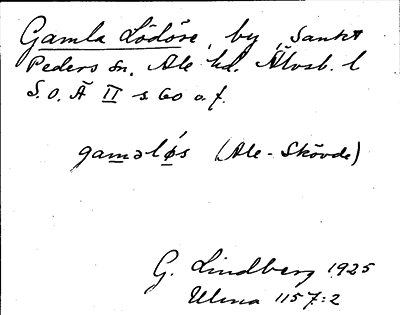 Gamla Lödöse, by, Sankt
Peders sn, Ale hd. Älvsb. l
S.O.Ä II s 60 o.f.
gaməlǿs (Ale-Skövde)
G. Lindberg 1925
Ulma 1157:2